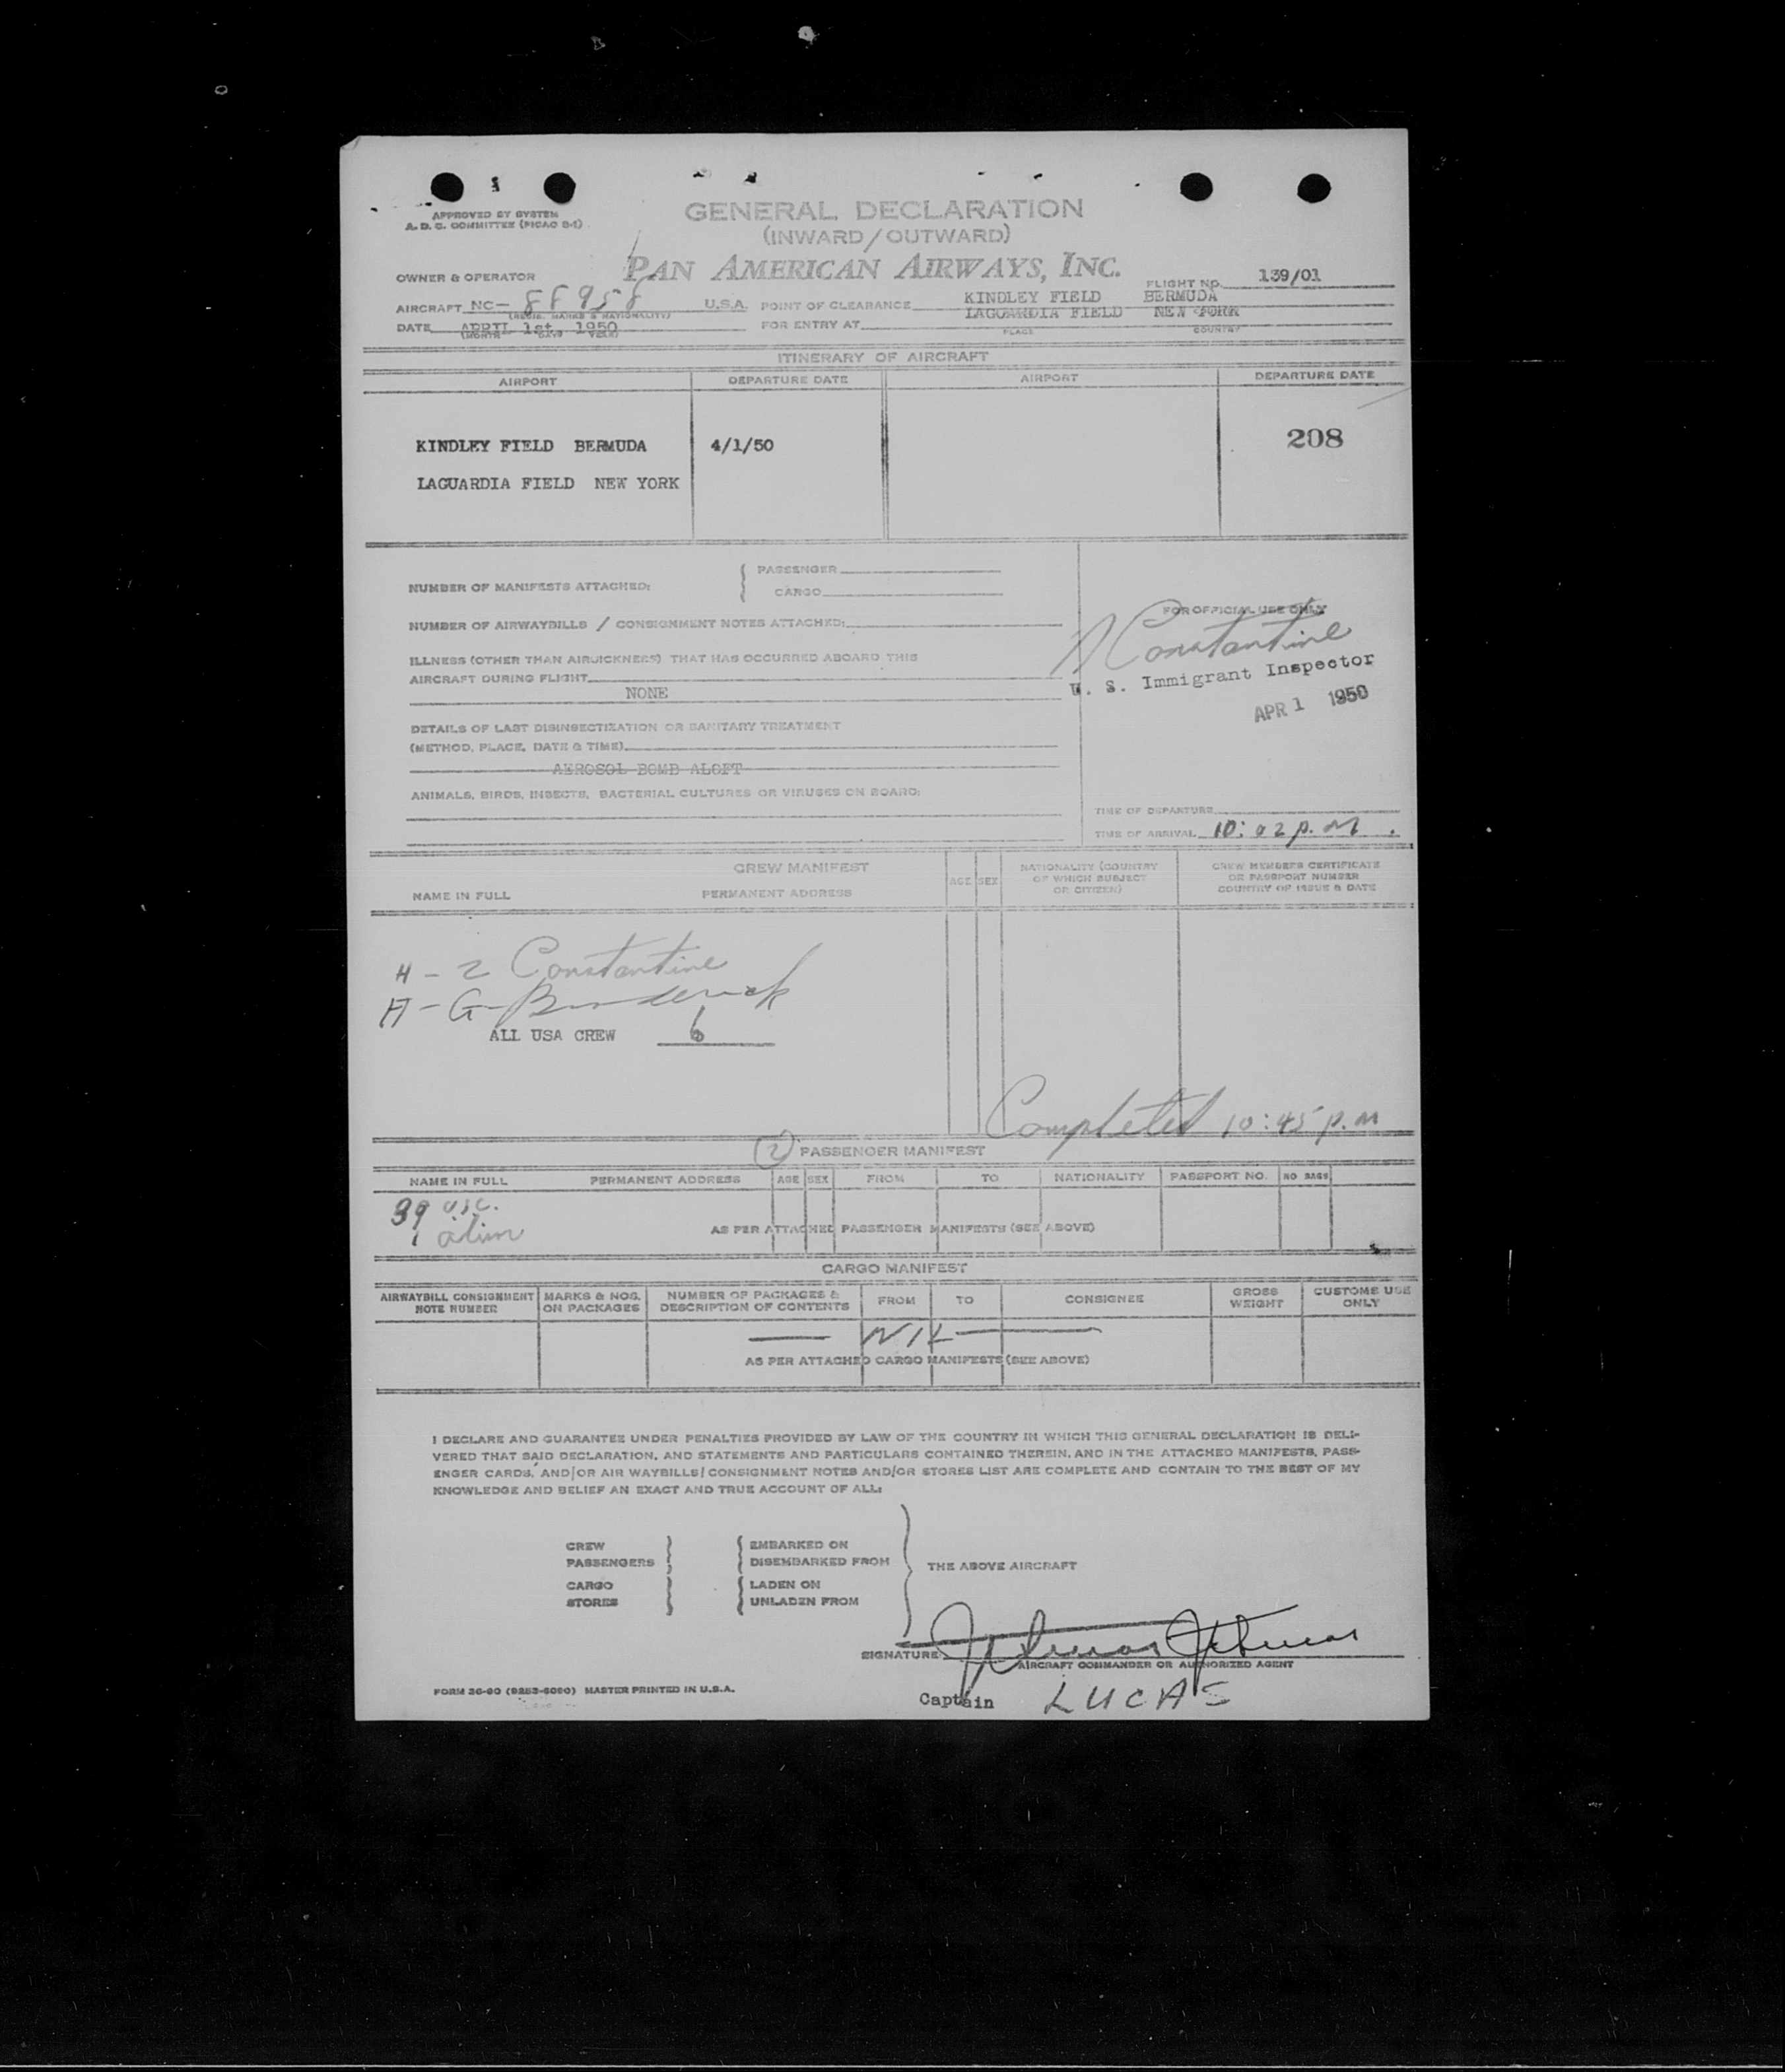 APPROVED BY SYSTEM
A. D. C. COMMITTEE (PICAO S-1)
GENERAL DECLARATION
(INWARD/OUTWARD)
OWNER & OPERATOR PAN AMERICAN AIRWAYS, INC. FLIGHT NO. 139/01
AIRCRAFT NC- 88958 U.S.A. POINT OF CLEARANCE KINDLEY FIELD BERMUDA
(REGIS. MARKS & NATIONALITY)
DATE APRIL 1st 1950 FOR ENTRY AT LAGUARDIA FIELD NEW YORK
(MONTH DAYS YEAR) PLACE COUNTRY
ITINERARY OF AIRCRAFT
AIRPORT DEPARTURE DATE AIRPORT DEPARTURE DATE
KINDLEY FIELD BERMUDA 4/1/50 208
LAGUARDIA FIELD NEW YORK
NUMBER OF MANIFESTS ATTACHED: PASSENGER
CARGO
FOR OFFICIAL USE ONLY
NUMBER OF AIRWAYBILLS / CONSIGNMENT NOTES ATTACHED:
Constantine
ILLNESS (OTHER THAN AIRSICKNESS) THAT HAS OCCURRED ABOARD THIS
AIRCRAFT DURING FLIGHT
NONE
U. S. Immigrant Inspector
APR 1 1950
DETAILS OF LAST DISINSECTIZATION OR SANITARY TREATMENT
(METHOD, PLACE, DATE & TIME)
AEROSOL BOMB ALOFT
ANIMALS, BIRDS, INSECTS, BACTERIAL CULTURES OR VIRUSES ON BOARD:
TIME OF DEPARTURE
TIME OF ARRIVAL 10:02 p.m.
CREW MANIFEST
NAME IN FULL PERMANENT ADDRESS AGE SEX NATIONALITY (COUNTRY OF WHICH SUBJECT OR CITIZEN) CREW MEMBERS CERTIFICATE OR PASSPORT NUMBER COUNTRY OF ISSUE & DATE
H - 2 Constantine
H - G
ALL USA CREW 6
Completed 10:45 p.m
(2) PASSENGER MANIFEST
NAME IN FULL PERMANENT ADDRESS AGE SEX FROM TO NATIONALITY PASSPORT NO. NO BAGS
39 usc.
1 alien
AS PER ATTACHED PASSENGER MANIFESTS (SEE ABOVE)
CARGO MANIFEST
AIRWAYBILL CONSIGNMENT NOTE NUMBER MARKS & NOS. ON PACKAGES NUMBER OF PACKAGES & DESCRIPTION OF CONTENTS FROM TO CONSIGNEE GROSS WEIGHT CUSTOMS USE ONLY
NIL
AS PER ATTACHED CARGO MANIFESTS (SEE ABOVE)
I DECLARE AND GUARANTEE UNDER PENALTIES PROVIDED BY LAW OF THE COUNTRY IN WHICH THIS GENERAL DECLARATION IS DELI-
VERED THAT SAID DECLARATION, AND STATEMENTS AND PARTICULARS CONTAINED THEREIN, AND IN THE ATTACHED MANIFESTS, PASS-
ENGER CARDS, AND/OR AIR WAYBILLS/CONSIGNMENT NOTES AND/OR STORES LIST ARE COMPLETE AND CONTAIN TO THE BEST OF MY
KNOWLEDGE AND BELIEF AN EXACT AND TRUE ACCOUNT OF ALL:
CREW EMBARKED ON
PASSENGERS DISEMBARKED FROM THE ABOVE AIRCRAFT
CARGO LADEN ON
STORES UNLADEN FROM
SIGNATURE
AIRCRAFT COMMANDER OR AUTHORIZED AGENT
FORM 36-90 (9253-6090) MASTER PRINTED IN U.S.A.
Captain LUCAS